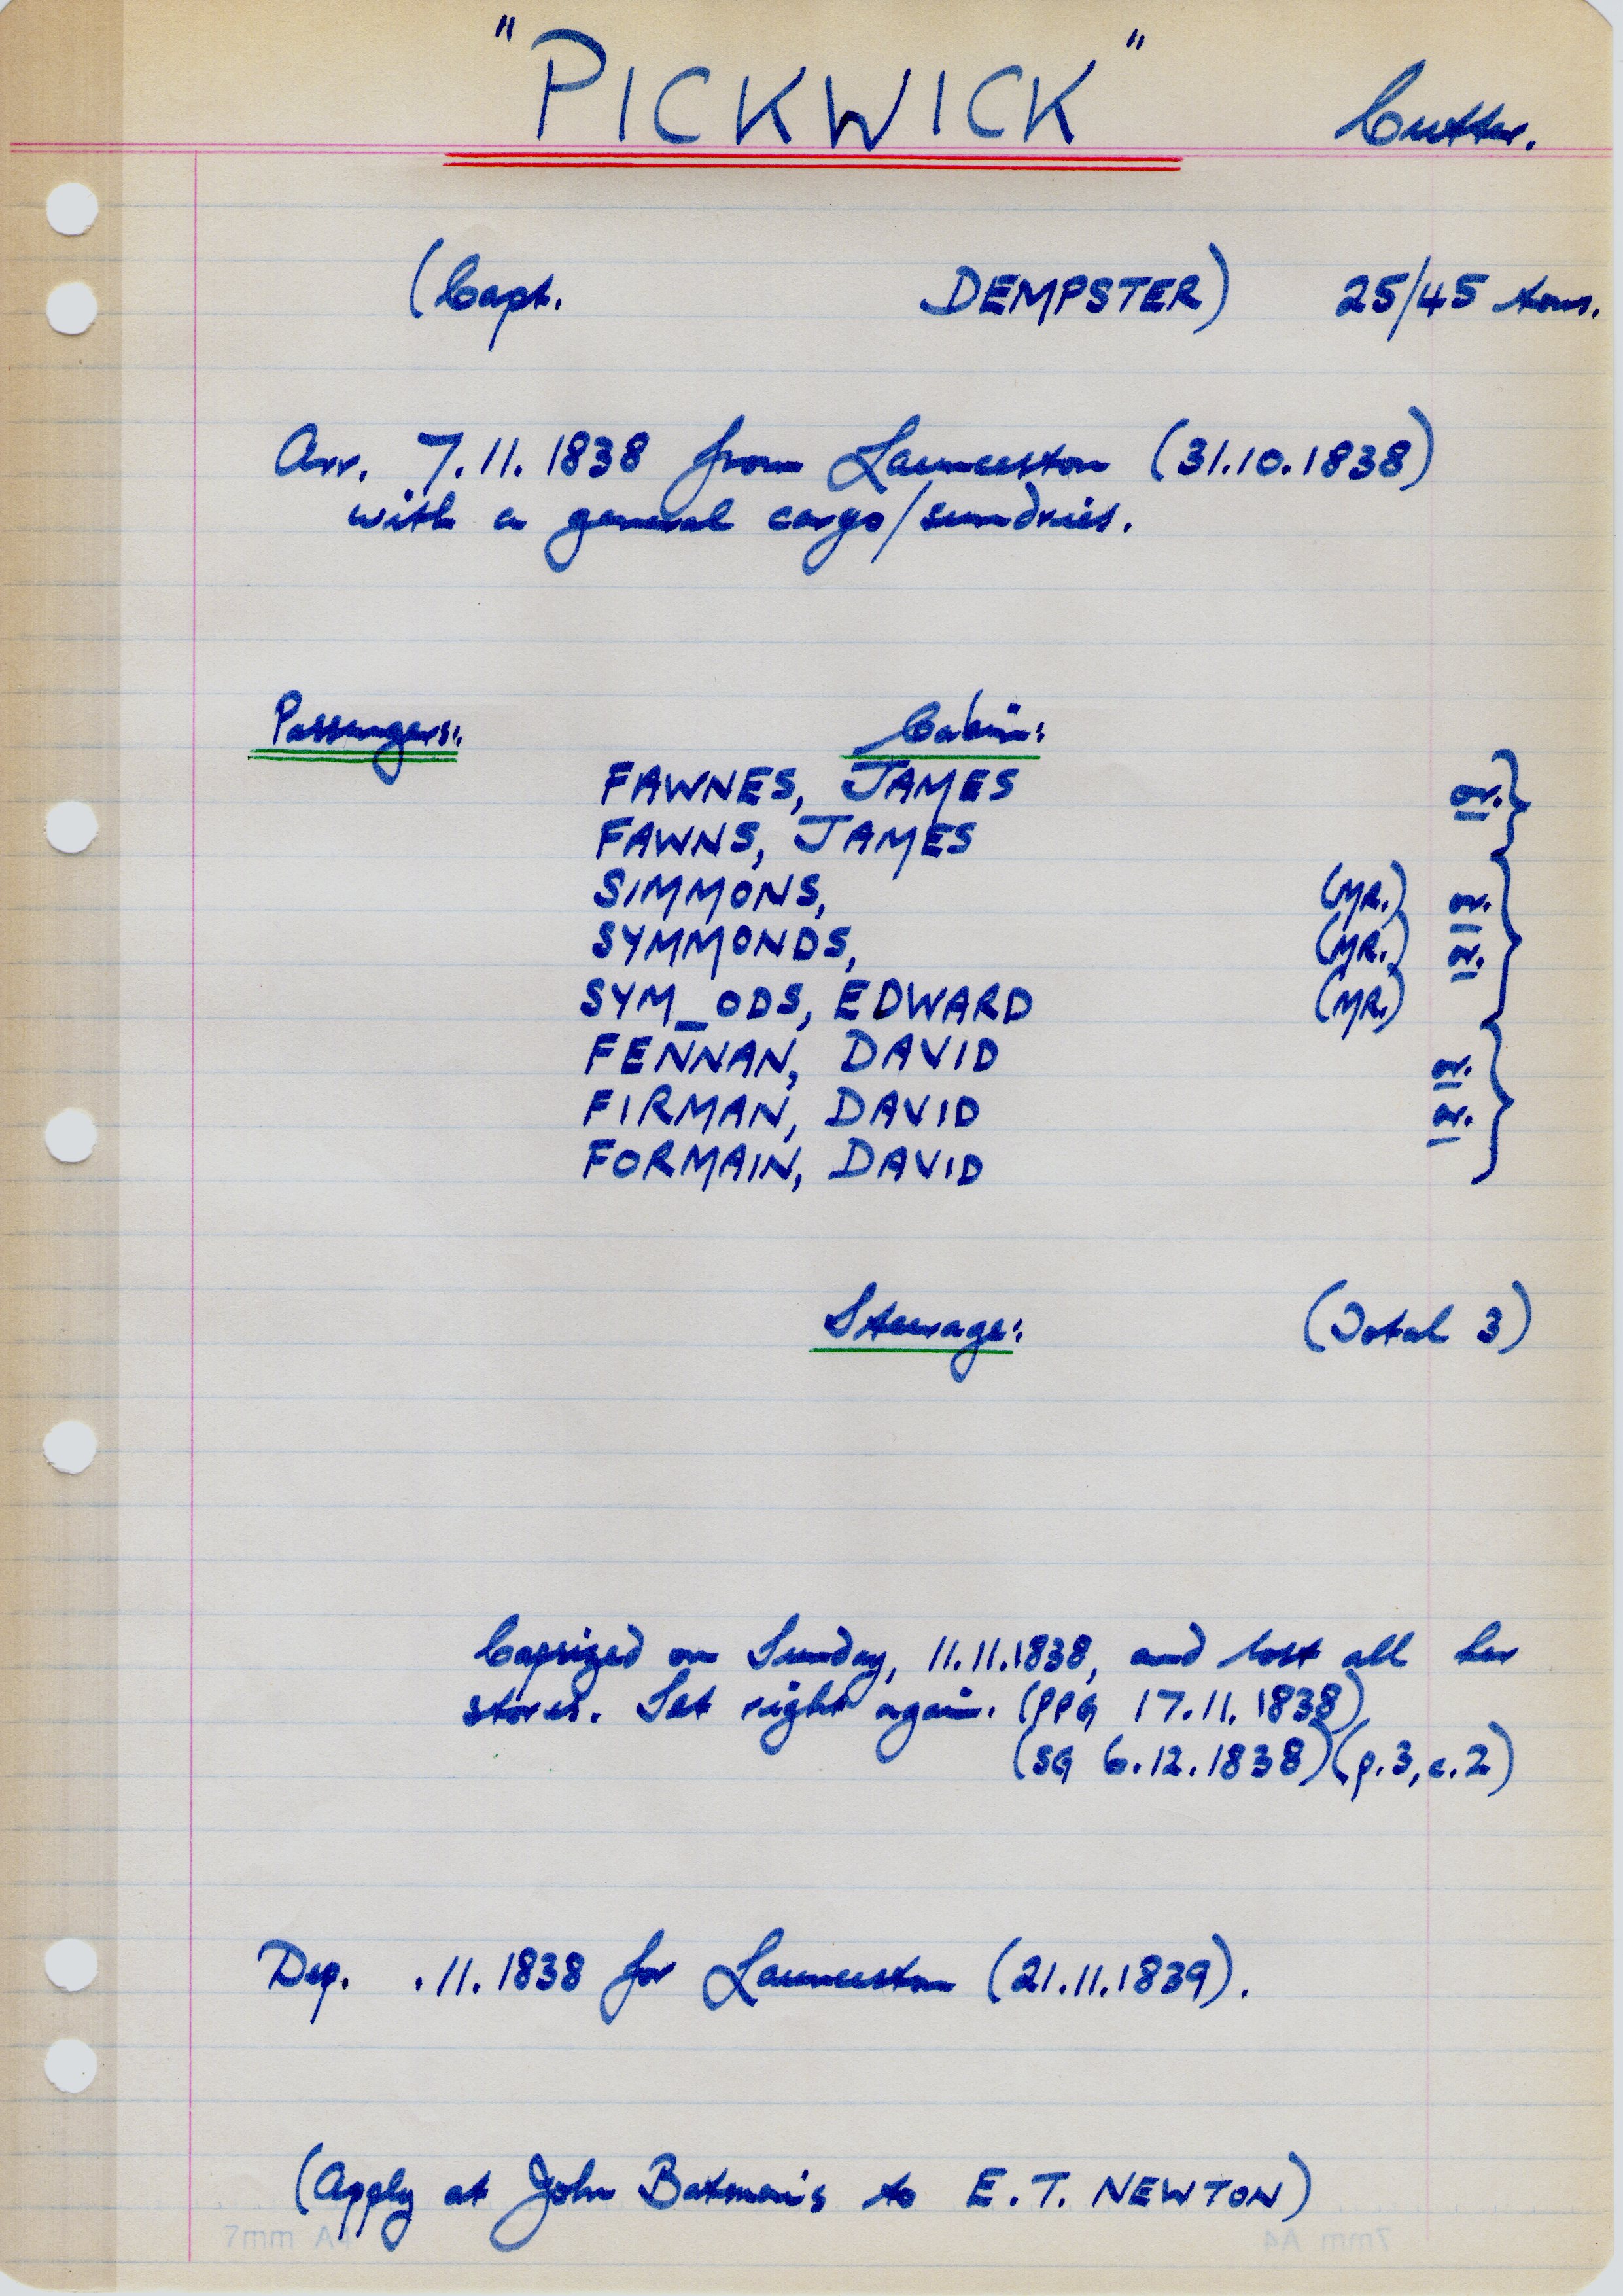 "PICKWICK" Cutter.
(Capt. DEMPSTER) 25/45 tons.
Arr. 7.11.1838 from Launceston (31.10.1838)
with a general cargo/sundries.
Passengers: Cabin:
FAWNES, JAMES or.
FAWNS, JAMES
SIMMONS, (MR.) or.
SYMMONDS, (MR.) or.
SYM_ODS, EDWARD (MR.)
FENNAN, DAVID or.
FIRMAN, DAVID or.
FORMAIN, DAVID
Steerage: (Total 3)
Capsized on Sunday, 11.11.1838, and lost all her
stores. Set right again. (PPG 17.11.1838)
(SG 6.12.1838) (p.3, c.2)
Dep. .11.1838 for Launceston (21.11.1839).
(Apply at John Batman's to E.T. NEWTON)
7mm A4 7mm A4